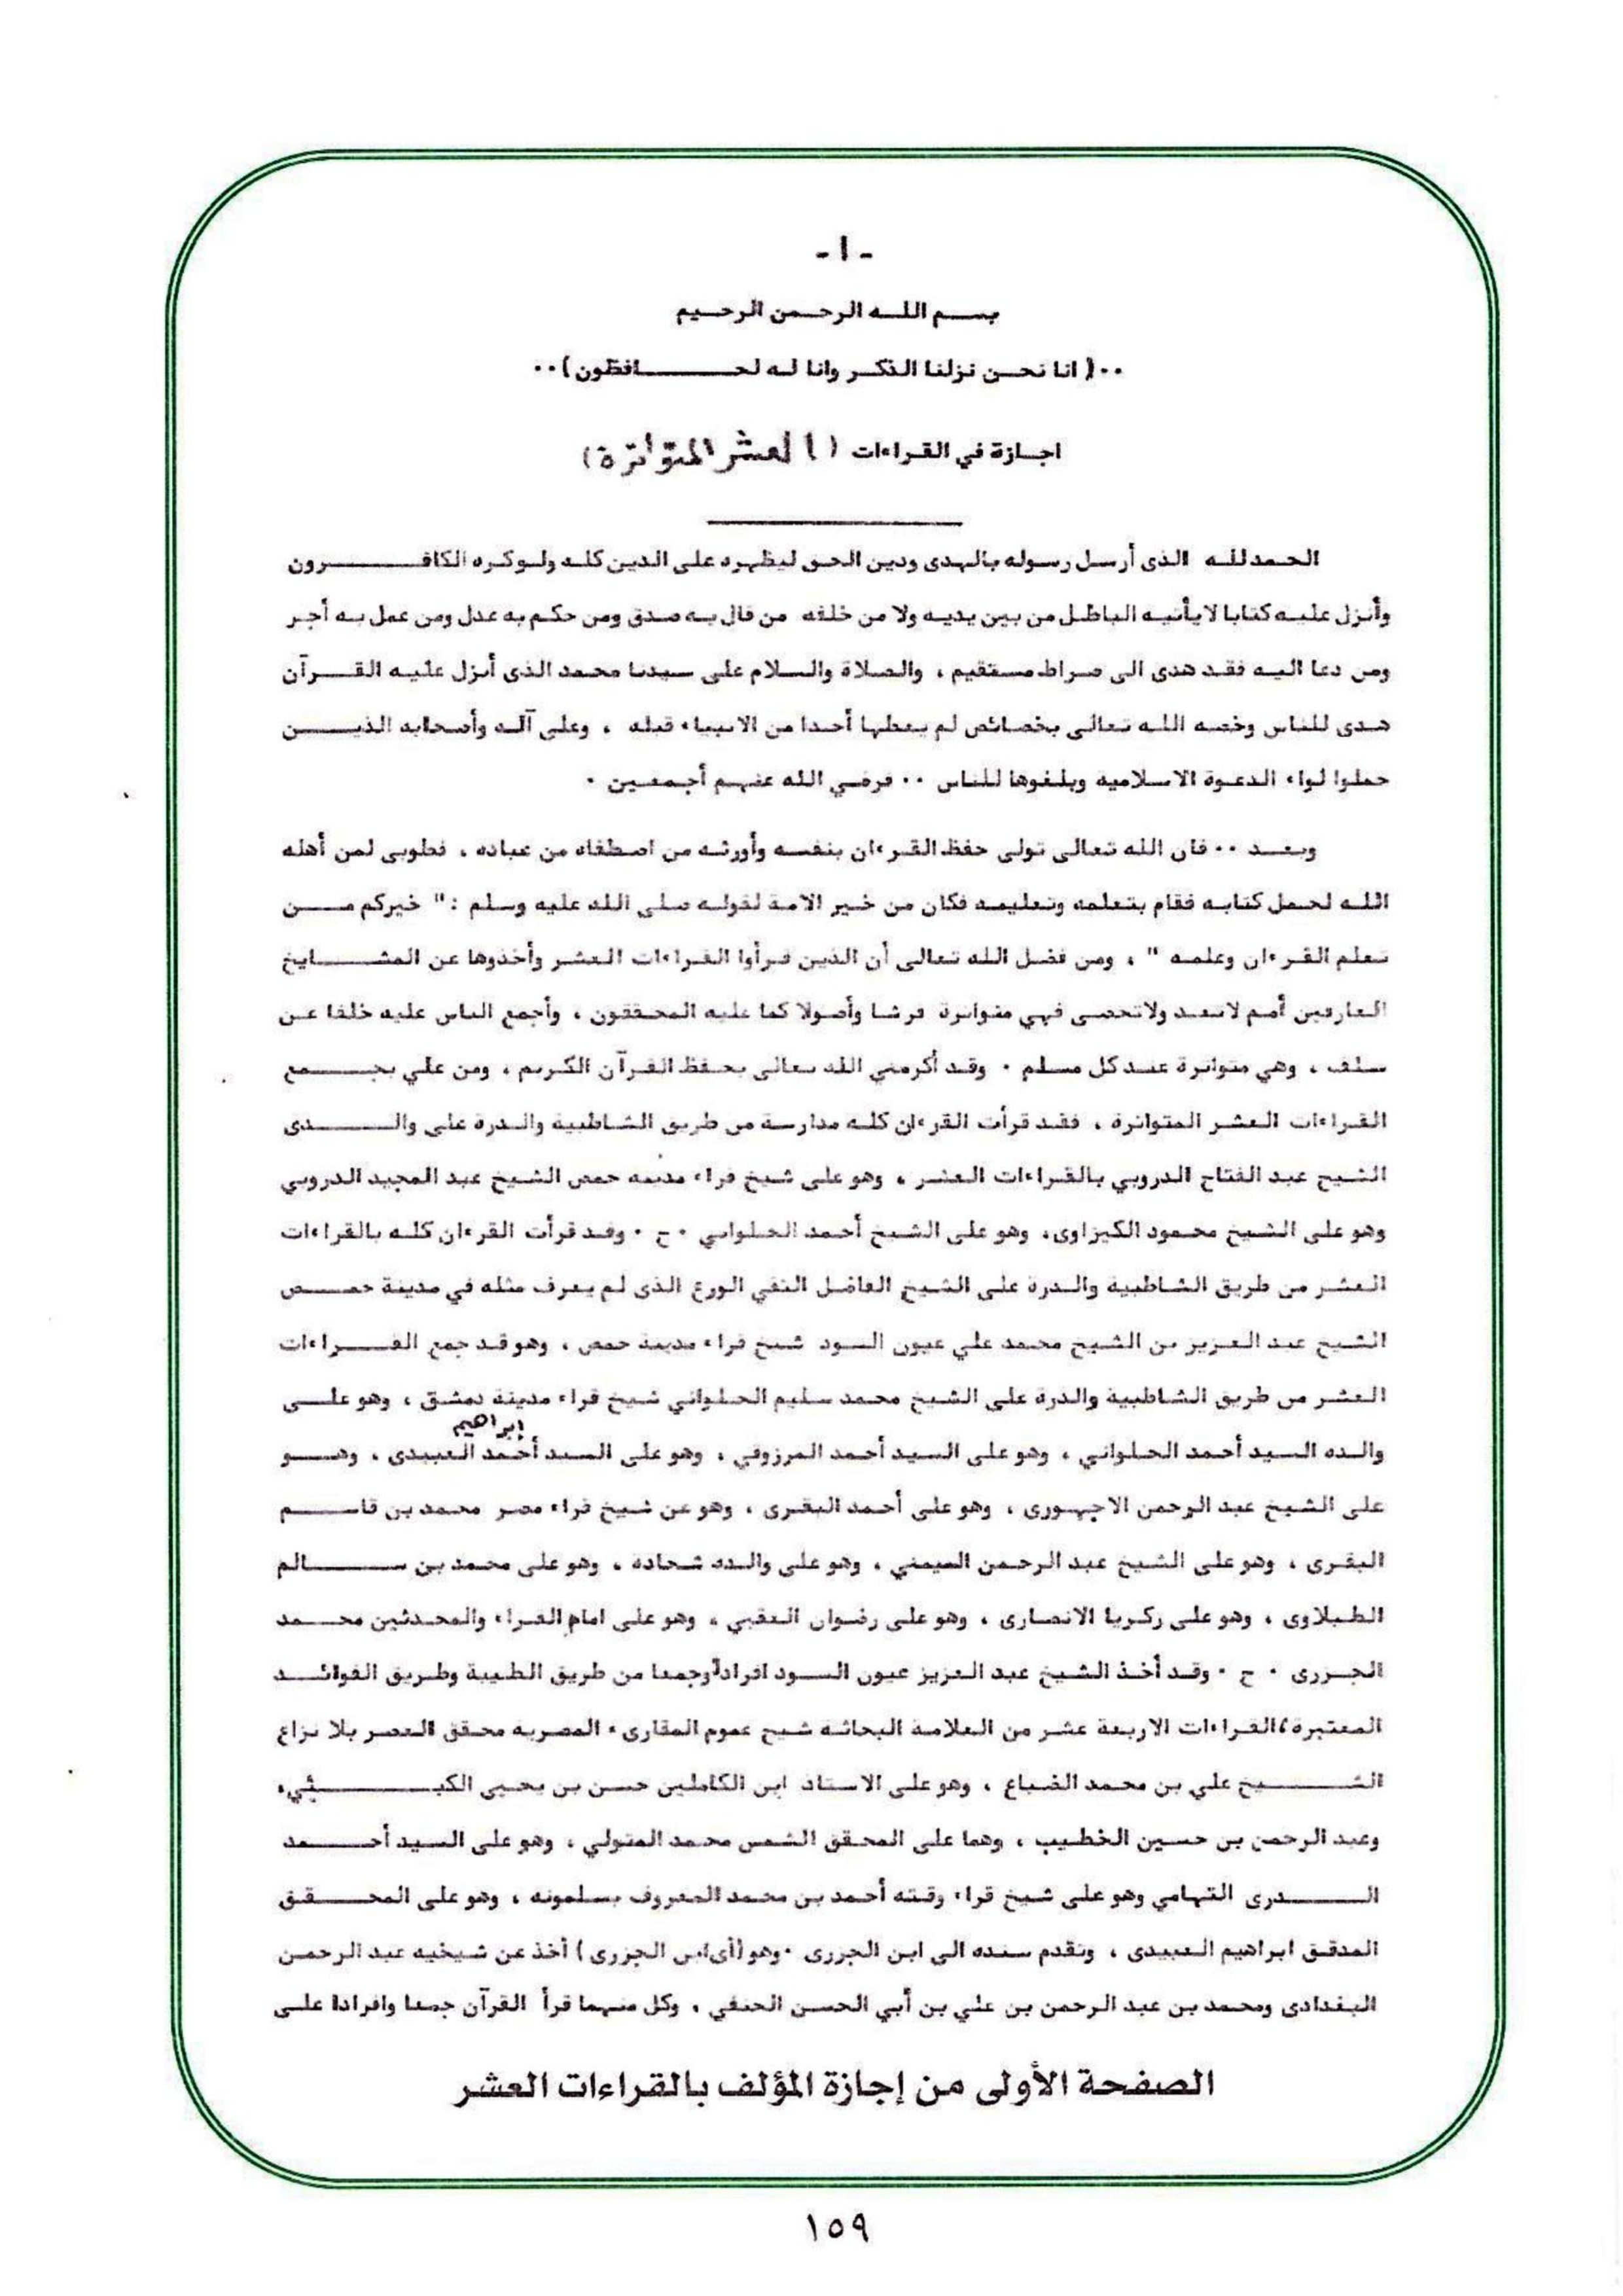 - ١ -
بسم الله الرحمن الرحيم
٠٠( انا نحن نزلنا الذكر وانا له لحافظون)٠٠
اجازة في القراءات (العشر المتواترة)
الحمدلله الذى أرسل رسوله بالهدى ودين الحق ليظهره على الدين كله ولوكره الكافرون
وأنزل عليه كتابا لا يأتيه الباطل من بين يديه ولا من خلفه من قال به صدق ومن حكم به عدل ومن عمل به أجر
ومن دعا اليه فقد هدى الى صراط مستقيم ، والصلاة والسلام على سيدنا محمد الذى أنزل عليه القرآن
هدى للناس وخصه الله تعالى بخصائص لم يعطها أحدا من الانبياء قبله ، وعلى آله وأصحابه الذين
حملوا لواء الدعوة الاسلاميه وبلغوها للناس ٠٠ فرضي الله عنهم أجمعين ٠
وبعد ٠٠ فان الله تعالى تولى حفظ القرءان بنفسه وأورثه من اصطفاه من عباده ، فطوبى لمن أهله
الله لحمل كتابه فقام بتعلمه وتعليمه فكان من خير الامة لقوله صلى الله عليه وسلم :" خيركم من
تعلم القرءان وعلمه " ، ومن فضل الله تعالى أن الذين قرأوا القراءات العشر وأخذوها عن المشايخ
العارفين أمم لاتعد ولاتحصى فهي متواترة فرشا وأصولا كما عليه المحققون ، وأجمع الناس عليه خلفا عن
سلف ، وهي متواترة عند كل مسلم ٠ وقد أكرمني الله تعالى بحفظ القرآن الكريم ، ومن علي بجمع
القراءات العشر المتواترة ، فقد قرأت القرءان كله مدارسة من طريق الشاطبية والدرة على والدى
الشيخ عبد الفتاح الدروبي بالقراءات العشر ، وهو على شيخ قراء مدينه حمص الشيخ عبد المجيد الدروبي
وهو على الشيخ محمود الكيزاوى، وهو على الشيخ أحمد الحلواني ٠ ح ٠ وقد قرأت القرءان كله بالقراءات
العشر من طريق الشاطبية والدرة على الشيخ الفاضل التقي الورع الذى لم يعرف مثله في مدينة حمص
الشيخ عبد العزيز بن الشيخ محمد علي عيون السود شيخ قراء مدينة حمص ، وهو قد جمع القراءات
العشر من طريق الشاطبية والدرة على الشيخ محمد سليم الحلواني شيخ قراء مدينة دمشق ، وهو على
إبراهيم
والده السيد أحمد الحلواني ، وهو على السيد أحمد المرزوقي ، وهو على السيد أحمد العبيدى ، وهو
على الشيخ عبد الرحمن الاجهورى ، وهو على أحمد البقرى ، وهو عن شيخ قراء مصر محمد بن قاسم
البقرى ، وهو على الشيخ عبد الرحمن اليمني ، وهو على والده شحاده ، وهو على محمد بن سالم
الطبلاوى ، وهو على زكريا الانصارى ، وهو على رضوان العقبي ، وهو على امام القراء والمحدثين محمد
الجزرى ٠ ح ٠ وقد أخذ الشيخ عبد العزيز عيون السود افراداً وجمعا من طريق الطيبة وطريق الفوائد
المعتبرة، القراءات الاربعة عشر من العلامة البحاثه شيخ عموم المقارىء المصريه محقق العصر بلا نزاع
الشيخ علي بن محمد الضباع ، وهو على الاستاذ ابن الكاملين حسن بن يحيى الكتبي،
وعبد الرحمن بن حسين الخطيب ، وهما على المحقق الشمس محمد المتولي ، وهو على السيد أحمد
الدرى التهامي وهو على شيخ قراء وقته أحمد بن محمد المعروف بسلمونه ، وهو على المحقق
المدقق ابراهيم العبيدى ، وتقدم سنده الى ابن الجزرى ٠ وهو (أى ابن الجزرى ) أخذ عن شيخيه عبد الرحمن
البغدادى ومحمد بن عبد الرحمن بن علي بن أبي الحسن الحنفي ، وكل منهما قرأ القرآن جمعا وافرادا على
الصفحة الأولى من إجازة المؤلف بالقراءات العشر
١٥٩